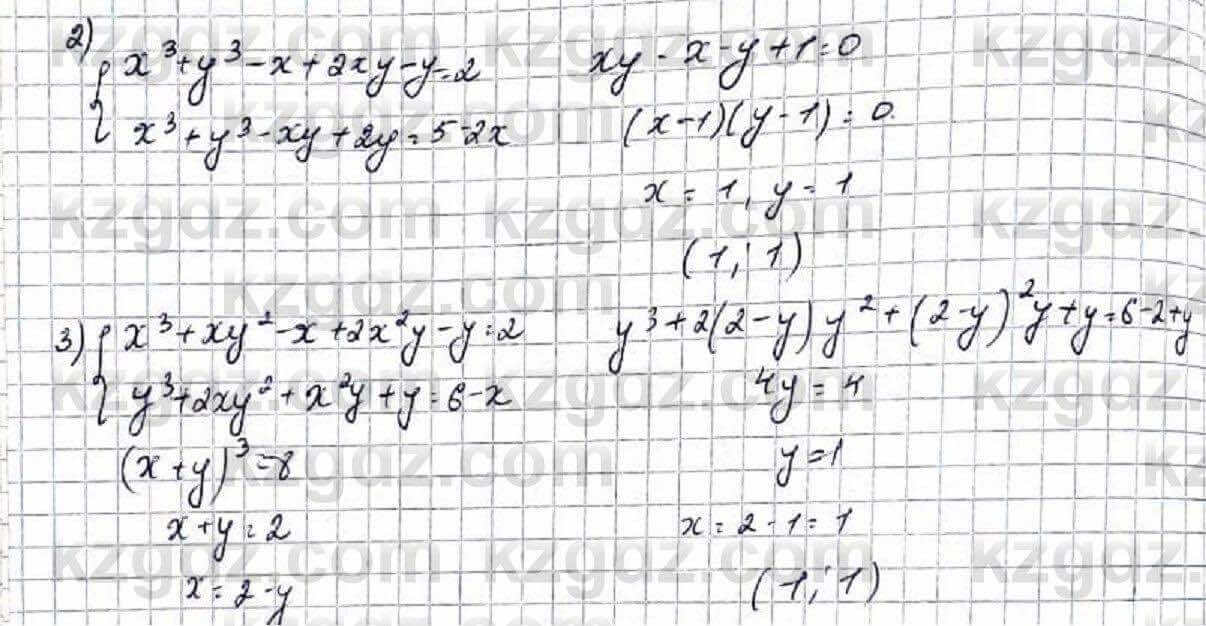 2) { x³+y³-x+2xy-y=2
x³+y³-xy+2y=5-2x
xy-x-y+1=0
(x-1)(y-1)=0.
x=1, y=1
(1; 1)
3) { x³+xy²-x+2x²y-y=2
y³+2xy²+x²y+y=6-x
(x+y)³=8
x+y=2
x=2-y
y³+2(2-y)y²+(2-y)²y+y=6-2+y
4y=4
y=1
x=2-1=1
(1; 1)
kzgdz.com